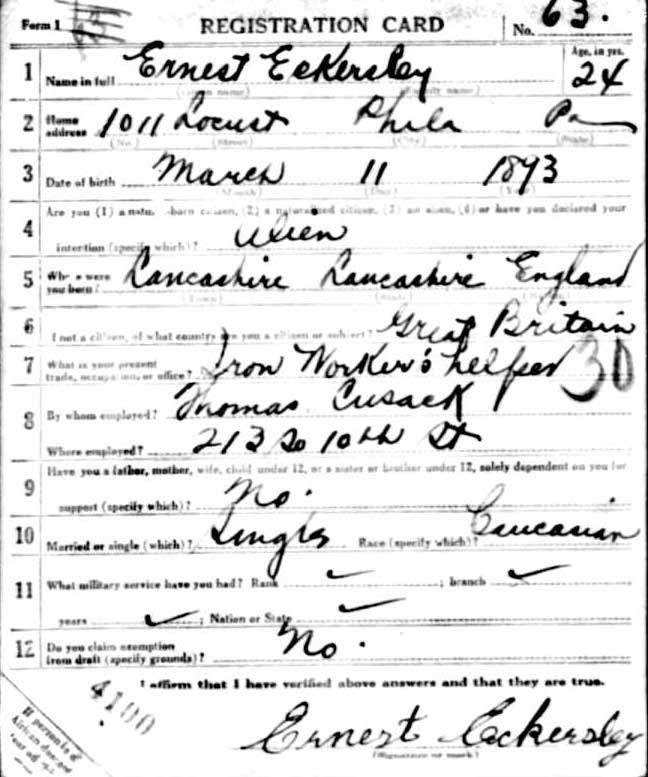 Form 1 REGISTRATION CARD No. 63.
1 Name in full Ernest Eckersley Age, in yrs. 24
(Given name) (Family name)
2 Home address 1011 Locust Phila Pa
(No.) (Street) (City) (State)
3 Date of birth March 11 1893
(Month) (Day) (Year)
4 Are you (1) a natu -born citizen, (2) a naturalized citizen, (3) an alien, (4) or have you declared your
intention (specify which)? Alien
5 Where were you born? Lancashire Lancashire England
(Town) (State) (Nation)
6 I not a citizen, of what country are you a citizen or subject? Great Britain
7 What is your present trade, occupation, or office? Iron Worker's helper 30
8 By whom employed? Thomas Cusack
Where employed? 213 So 10th St
9 Have you a father, mother, wife, child under 12, or a sister or brother under 12, solely dependent on you for
support (specify which)? No.
10 Married or single (which)? Single Race (specify which)? Caucasian
11 What military service have you had? Rank ✓ ; branch ✓
years ✓ ; Nation or State ✓
12 Do you claim exemption from draft (specify grounds)? No.
I affirm that I have verified above answers and that they are true.
4100
If person is of African descent
Ernest Eckersley
(Signature or mark)